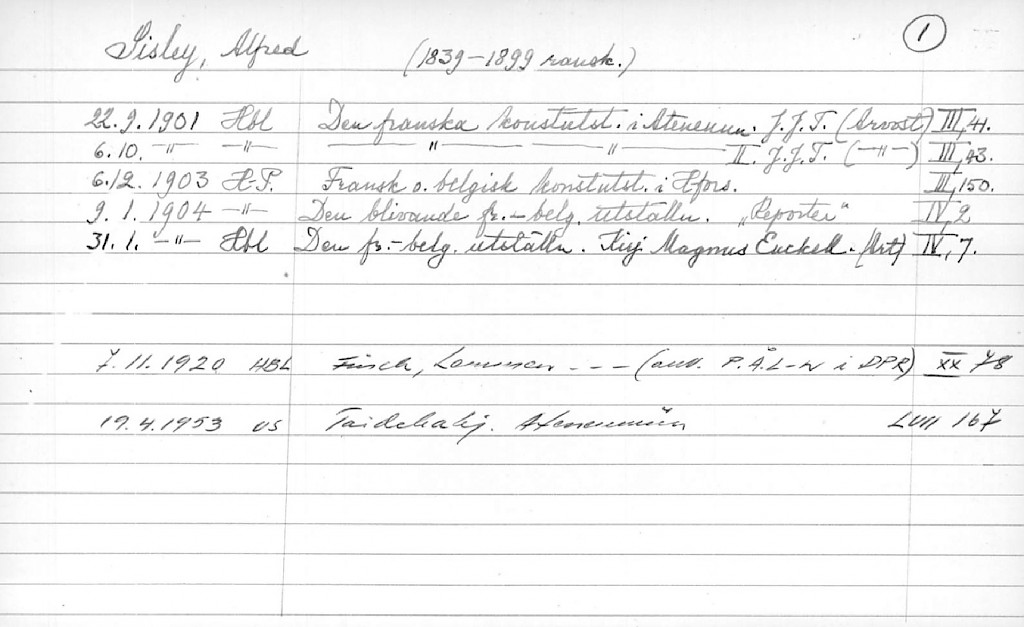 1
Sisley, Alfred (1839–1899 ransk.)
22.9.1901 Hbl Den franska konstutst. i Ateneum. J.J.T. (Arvost) III, 41.
6.10. –"– –"– –"– –"– II. J.J.T. (–"–) III, 43.
6/2. 1903 H-P. Fransk o. belgisk konstutst. i Hfors. III, 150.
9.1.1904 –"– Den blivande fr.-belg. utställn. "Reporter" IV, 2
31.1. –"– Hbl Den fr.-belg. utställn. Kirj Magnus Enckell. (Art) IV, 7.
7.11.1920 HBL Finch, - - - (P.Å.L-N i DPR) XX 78
19.4.1953 US Taidelahj. Ateneumiin LVII 167